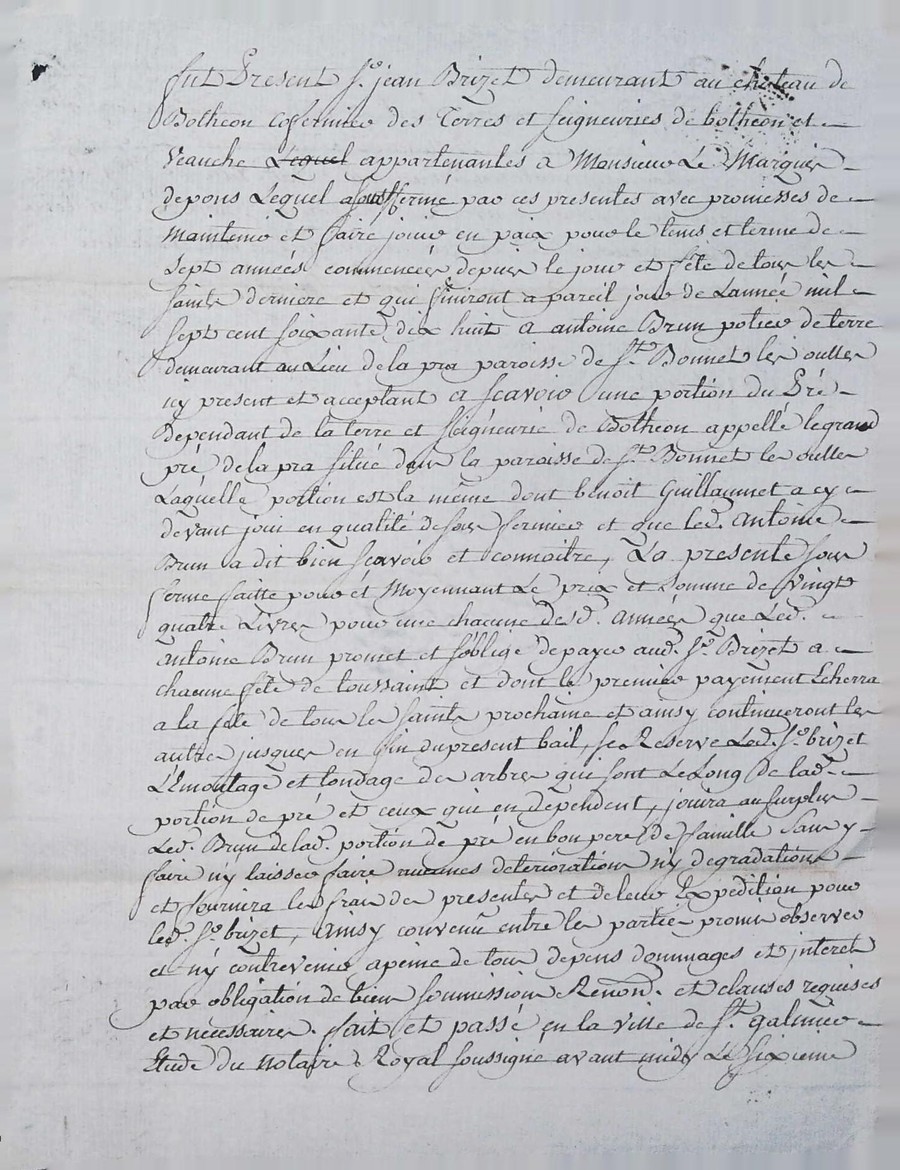 fut Present Sr. jean Brizet demeurant au chateau de
Botheon cofermier des Terres et seigneuries de botheon et
Veauche Lequel appartenantes a Monsieur Le Marquis
depons Lequel a sousffermé par ces presentes avec promesses de
Maintenir et faire jouir en paix pour le tems et terme de
Sept années commencées depuis le jour et fête de tous les
saints derniere et qui finiront a pareil jour de Lannée mil
sept cent soixante dix huit a antoine Brun potier de terre
demeurant au Lieu de la pra paroisse de St. Bonnet les oulles
icy present et acceptant a scavoir une portion du Pré
Dependant de la terre et seigneurie de Botheon appellé le grand
pré de la pra situé dans la paroisse de St. Bonnet les oulles
Laquelle portion est la même dont benoit Guillaumet a cy
devant joui en qualité de sous fermier et que led. antoine
Brun a dit bien scavoir et connoitre, La presente sous
ferme faitte pour et Moyennant Le prix et somme de vingt
quatre Livres pour une chacune desd. années que Led.
antoine Brun promet et soblige de payer aud. Sr. Brizet a
chacune fête de toussaint et dont le premier payement Echerra
a la fete de tous les saints prochaine et ainsy continueront les
autres jusques en fin du present bail, se Reserve Led. Sr. brizet
L'Emontage et tondage des arbres qui sont Le Long de lad.
portion de pré et ceux qui en dependent, jouira au surplus
Led. Brun de lad. portion de pré en bon pere de famille sans y
faire n'y laisser faire aucunes deteriorations n'y degradations
et fournira les frais des presentes et de leur Expedition pour
led. Sr. brizet, Ainsy convenu entre les parties promis observer
et n'y contrevenir apeine de tous depens dommages et interets
par obligation de biens soumissions Renond. et clauses requises
et necessaires. fait et passé en la ville de St. galmier
Etude du Notaire Royal soussigné avant midy Le sixieme